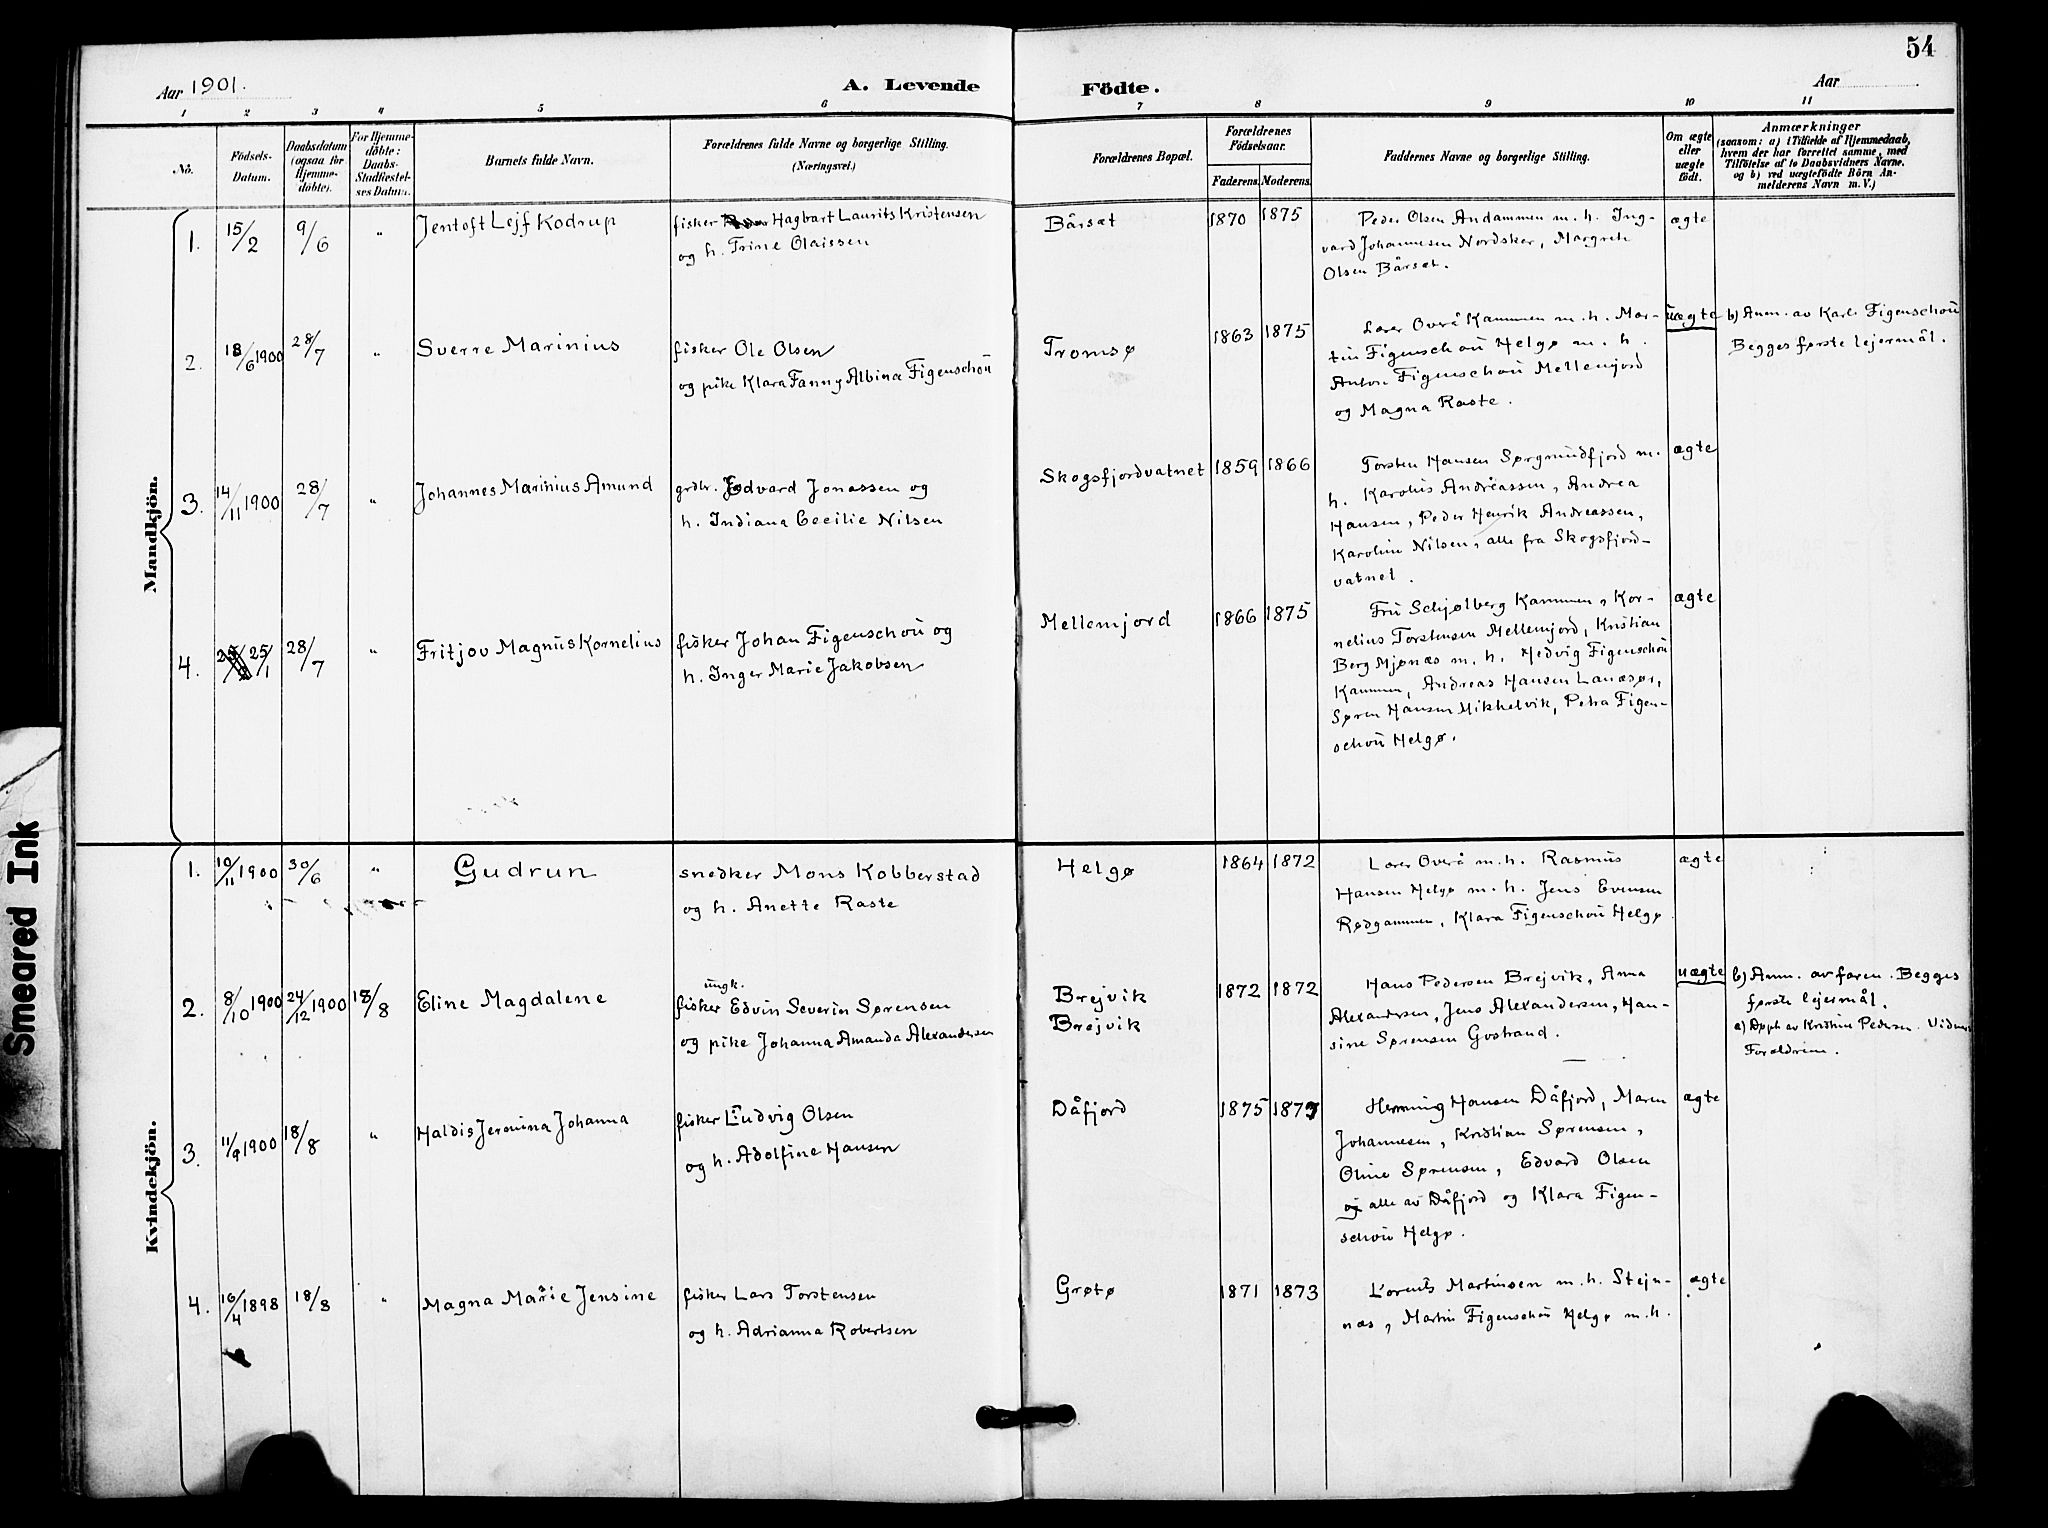 54
Aar 1901.
A. Levende Födte.
Aar
1 2 3 4 5 6 7 8 9 10 11
No.
Födsels-Datum.
Daabsdatum (ogsaa for Hjemme-döbte).
For Hjemme-döbte: Daabs-Stadfæstel-ses Datum.
Barnets fulde Navn.
Forældrenes fulde Navne og borgerlige Stilling. (Næringsvei.)
Forældrenes Bopæl.
Forældrenes Födselsaar.
Faderens. Moderens.
Faddernes Navne og borgerlige Stilling.
Om ægte eller uægte födt.
Anmærkninger
(saasom: a) i Tilfælde af Hjemmedaab, hvem der har forrettet samme, med Tilföielse af to Daabsvidners Navne. og b) ved uægtefödte Börn An-melderens Navn m. V.)
Mandkjön.
1. 15/2 9/6 " Jentoft Lejf Kodrup
fisker Hagbart Laurits Kristensen
og h. Trine Olaissen
Bårsæt 1870 1875
Peder Olsen Andammen m. h. Ing-
vard Johannesen Nordskar, Margreth
Olsen Bårsæt.
ægte
2. 18/6 1900 28/7 " Sverre Marinius
fisker Ole Olsen
og pike Klara Fanny Albina Figenschou
Tromsø 1863 1875
Lærer Overå Kammen m. h. Mar-
tin Figenschou Helgø m. h.
Anton Figenschou Mellemjord
og Magna Raste.
uægte
b) Anm. av Karl Figenschou
Begges første lejermål.
3. 14/11 1900 28/7 " Johannes Marinius Amund
grdbr. Edvard Jonassen og
h. Indiana Cecilie Nilsen
Skogsfjordvatnet 1859 1866
Torsten Hansen Sørgrundfjord m.
h. Karolus Andreassen, Andrea
Hansen, Peder Henrik Andreassen,
Karoline Nilsen, alle fra Skogsfjord-
vatnet.
ægte
4. 25/1 28/7 " Fritjov Magnus Kornelius
fisker Johan Figenschou og
h. Inger Marie Jakobsen
Mellemjord 1866 1875
Fru Schjølberg Kammen, Kor-
nelius Torstensen Mellemjord, Kristian
Berg Mjønæs m. h. Hedvig Figenschou
Kammen, Andreas Hansen Lanæsør,
Søren Hansen Mikkelvik, Petra Figen-
schou Helgø.
ægte
Kvindekjön.
1. 10/11 1900 30/6 " Gudrun
snedker Mons Kobberstad
og h. Anette Raste
Helgø 1864 1872
Lærer Overå m. h. Rasmus
Hansen Helgø m. h. Jens Evensen
Rødgammen, Klara Figenschou Helgø
ægte
2. 8/10 1900 24/12 1900 18/8 Eline Magdalene
ungk.
fisker Edvin Severin Sørensen
og pike Johanna Amanda Alexandersen
Brejvik
Brejvik
1872 1872
Hans Pedersen Brejvik, Anna
Alexandersen, Jens Alexandersen, Han-
sine Sørensen Govstrand.
uægte
b) Anm. av faren. Begges
første lejermål.
a) Døpt av Kristine Pedersen. Vidner
Forældrene.
3. 11/9 1900 18/8 " Haldis Jermina Johanna
fisker Ludvig Olsen
og h. Adolfine Hansen
Dåfjord 1875 1877
Hemming Hansen Dåfjord, Maren
Johannesen, Kristian Sørensen,
Oline Sørensen, Edvard Olsen
og alle av Dåfjord og Klara Figen-
schou Helgø.
ægte
4. 16/4 1898 18/8 " Magna Marie Jensine
fisker Lars Torstensen
og h. Adrianna Robertsen
Grøtø 1871 1873
Lorents Martinsen m. h. Stejn-
næs, Martin Figenschou Helgø m. h.
ægte
Smeared Ink